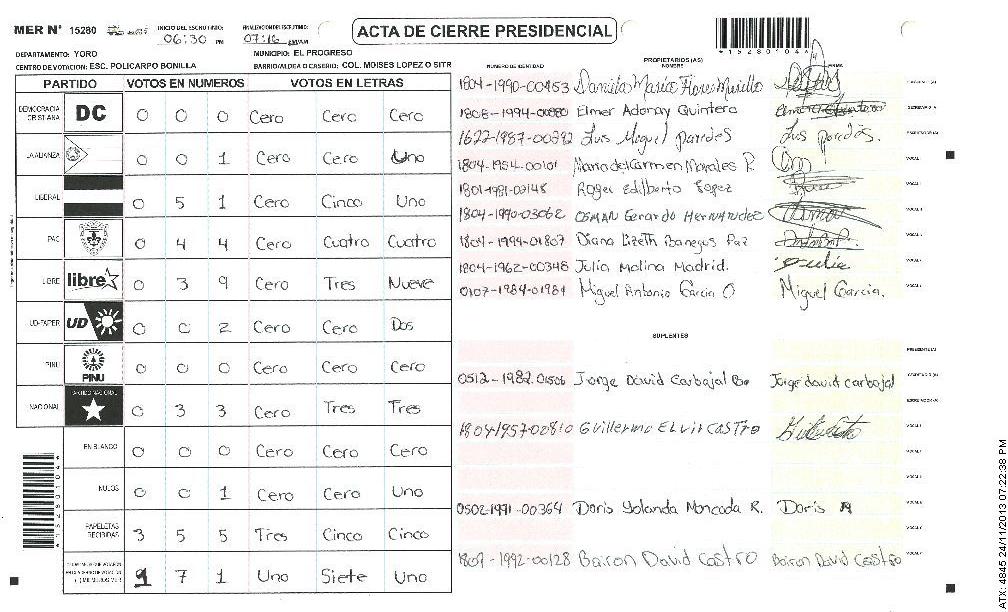 MER Nº 15280 INICIO DEL ESCRUTINIO: 06:30 PM FINALIZACION DEL ESCRUTINIO: 07:16 ACTA DE CIERRE PRESIDENCIAL
*15280104*
DEPARTAMENTO: YORO MUNICIPIO: EL PROGRESO
CENTRO DE VOTACION: ESC. POLICARPO BONILLA BARRIO/ALDEA O CASERIO: COL. MOISES LOPEZ O SITR
PARTIDO VOTOS EN NUMEROS VOTOS EN LETRAS
DEMOCRACIA CRISTIANA DC 0 0 0 Cero Cero Cero
LA ALIANZA 0 0 1 Cero Cero Uno
LIBERAL 0 5 1 Cero Cinco Uno
PAC 0 4 4 Cero Cuatro Cuatro
LIBRE libre 0 3 9 Cero Tres Nueve
UD-FAPER UD 0 0 2 Cero Cero Dos
PINU PINU 0 0 0 Cero Cero Cero
NACIONAL PARTIDO NACIONAL 0 3 3 Cero Tres Tres
EN BLANCO 0 0 0 Cero Cero Cero
NULOS 0 0 1 Cero Cero Uno
PAPELETAS RECIBIDAS 3 5 5 Tres Cinco Cinco
1 7 1 Uno Siete Uno
PROPIETARIOS (AS)
NUMERO DE IDENTIDAD NOMBRE FIRMA
1804-1990-00953 Daniela Maria Flores Murillo PRESIDENTE (A)
1808-1994-00980 Elmer Adonay Quintero Elmer Quintero SECRETARIO (A)
1622-1987-00392 Luis Miguel paredes Luis paredes. ESCRUTADOR (A)
1804-1954-00101 Maria del Carmen Morales R. VOCAL
1801-1991-02148 Roger Edilberto Lopez VOCAL
1804-1990-03062 OSMAN Gerardo Hernandez VOCAL
1804-1994-01807 Diana Lizeth Banegas Paz VOCAL
1804-1962-00348 Julia Molina Madrid. Julia VOCAL
0107-1984-01984 Miguel Antonio Garcia O Miguel Garcia. VOCAL
SUPLENTES
PRESIDENTE (A)
0512-1982-01506 Jorge David Carbajal Jorge david carbajal SECRETARIO (A)
ESCRUTADOR (A)
1804-1957-02810 Guillermo ELvir CASTRO VOCAL
VOCAL
VOCAL
0502-1991-00364 Doris Yolanda Moncada R. Doris VOCAL
VOCAL
1809-1992-00128 Bairon David Castro Bairon David Castro VOCAL
ATX: 4845 24/11/2013 07:22:38 PM